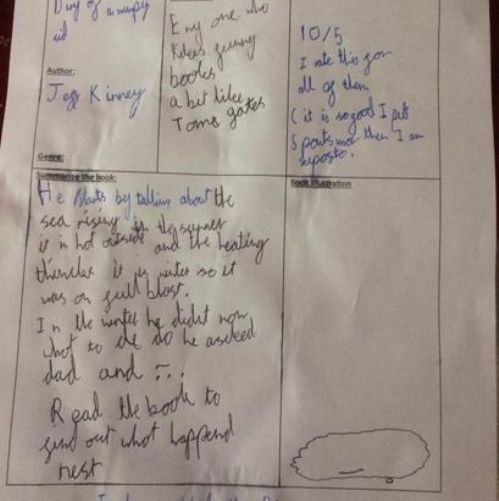 Diary of a wimpy
Author:
Jeff Kinney
Genre:
Eny one who
likes funny
books
a bit like
Tome gates
10/5
I rate this for
all of them
( it is so good I put
5 points mor then I am
suposto.
Summarise the book:
He starts by talking about the
sea rising in the summer
it is hot outside and the heating
it is winter so it
was on full blast.
In the winter he didnt now
what to do so he ascked
dad and ...
Read the book to
find out what happend
nest
Book illustration